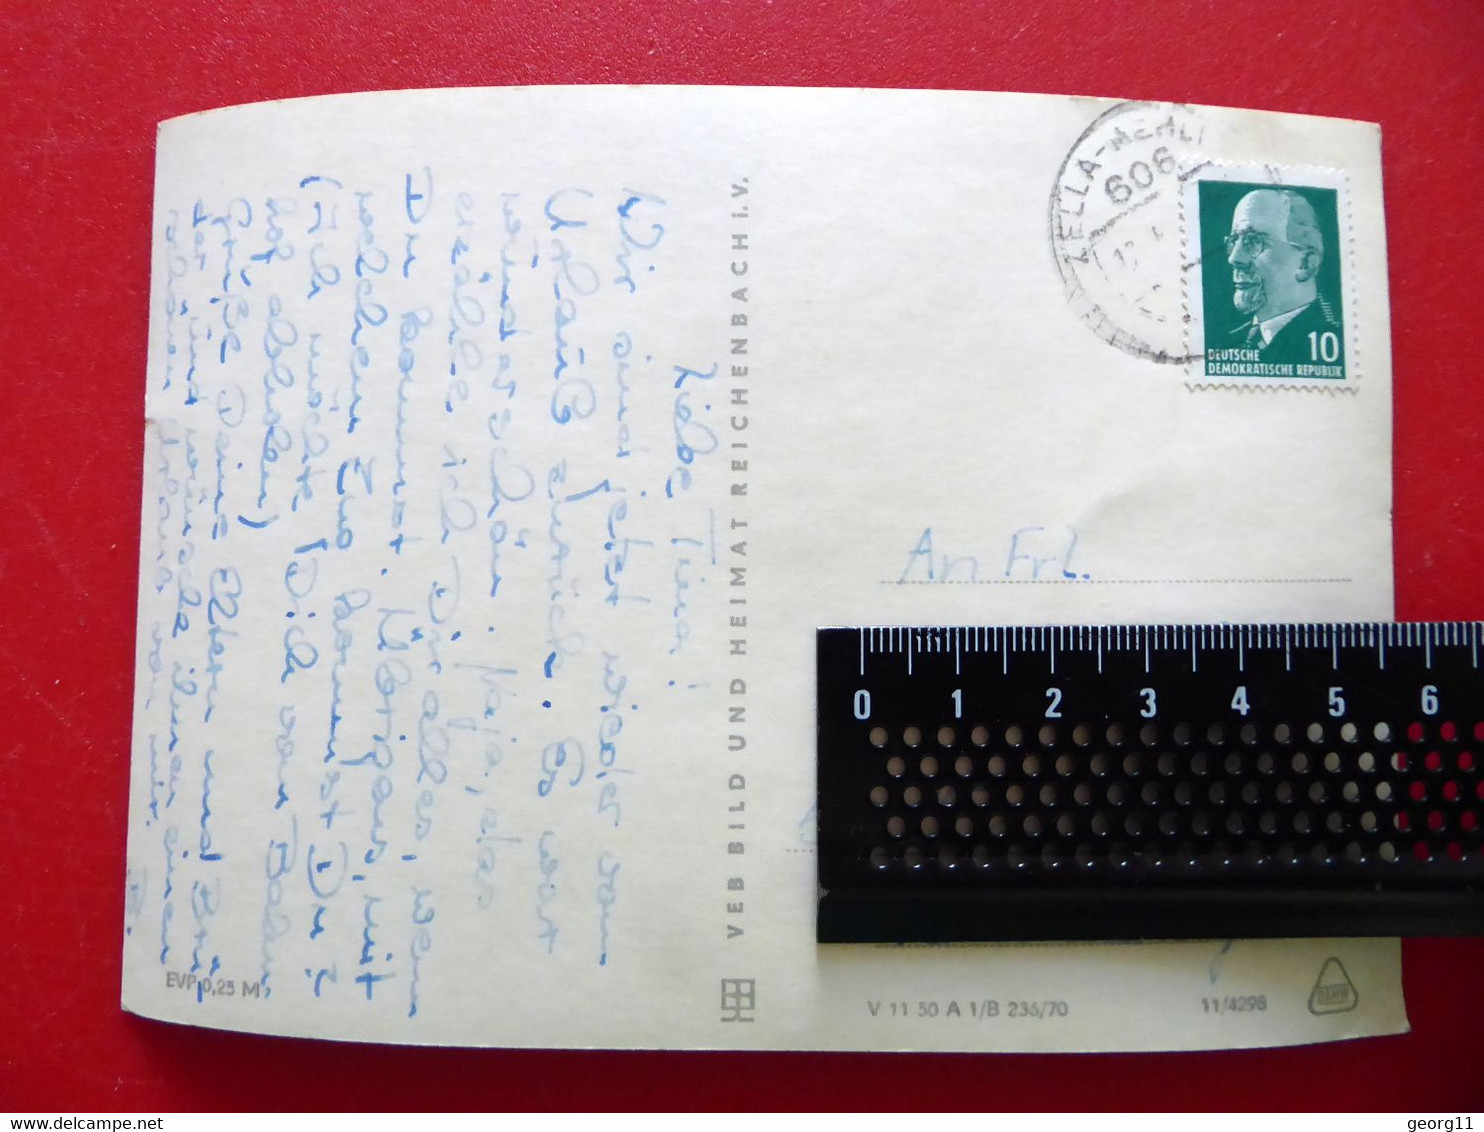 Liebe Tina!
Wir sind jetzt wieder vom
Urlauß zurück. Es war
wunderschön. Naja, das
erzähle ich Dir alles, wenn
Du kommst. Übrigens, mit
welchem Zug kommst Du?
(Ich möchte Dich vom Bahn-
hof abholen)
Grüße Deine Eltern und Brü-
der und wünsche ihnen einen
schönen Urlaub von mir.
EVP 0,25 M
VEB BILD UND HEIMAT REICHENBACH i. V.
ZELLA-MEHLI
606
DEUTSCHE
DEMOKRATISCHE REPUBLIK
10
An Frl.
0 1 2 3 4 5 6
V 11 50 A 1/B 236/70
11/4298
delcampe.net
georg11